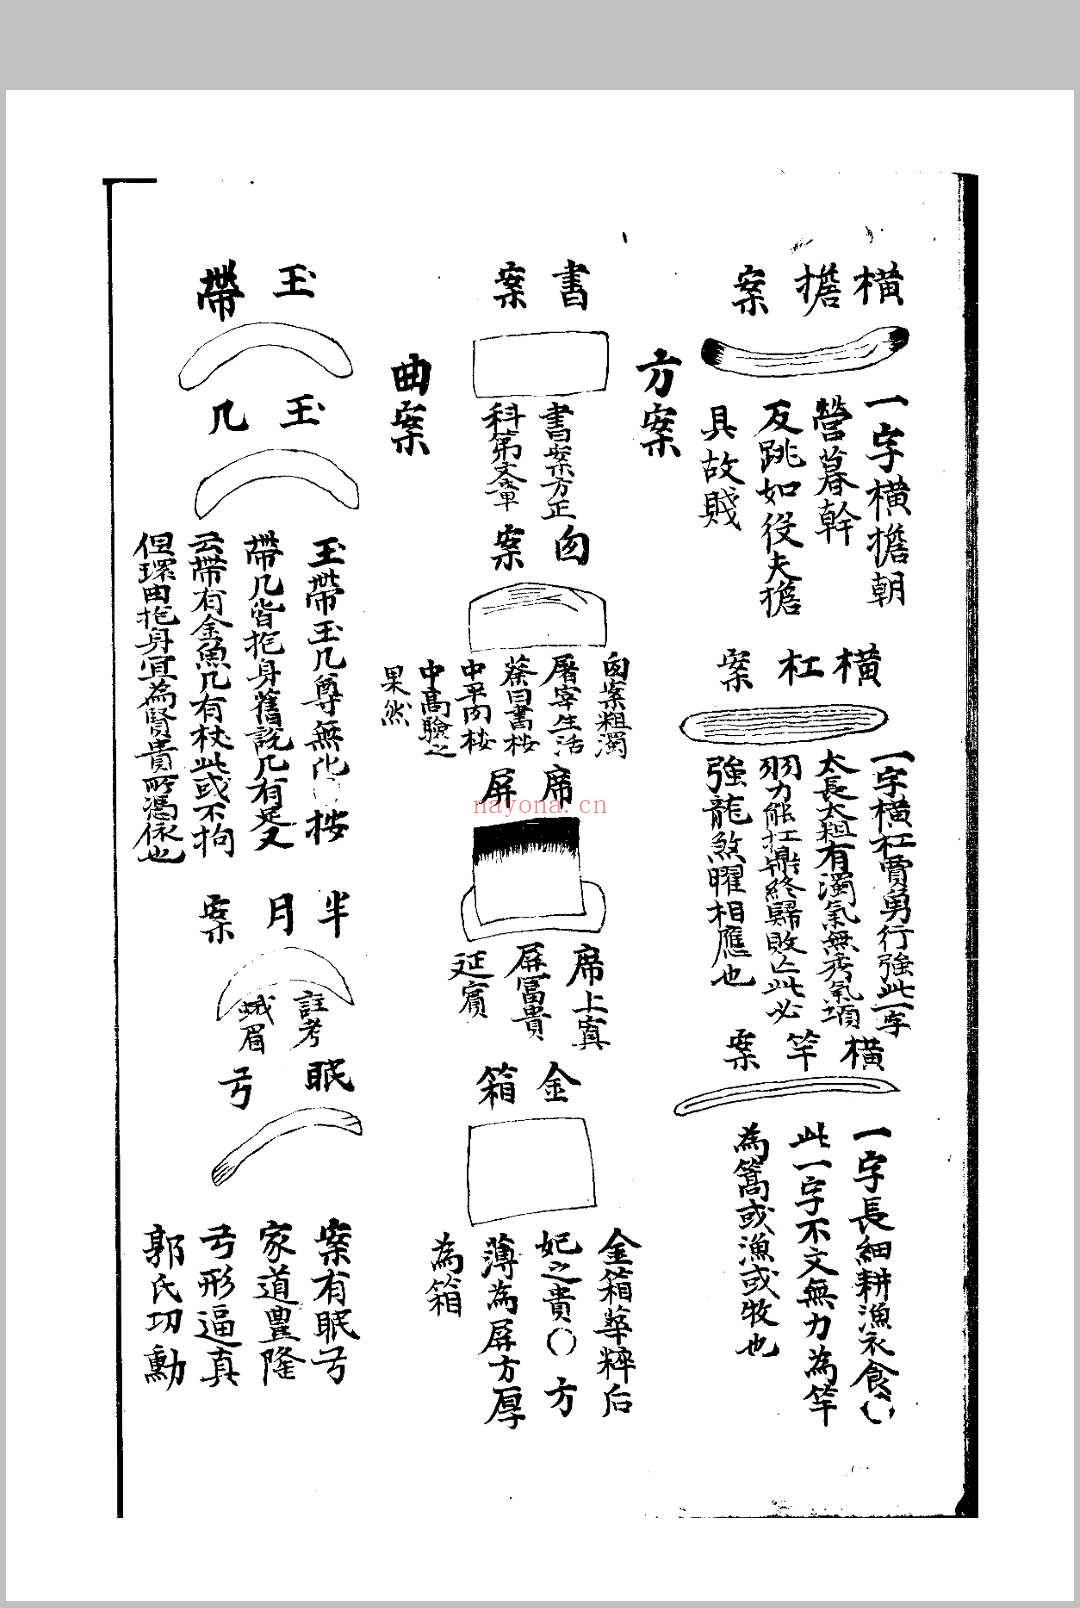 橫擔案
一字橫擔朝
營暮幹
反跳如役夫擔
具故賤
橫杠案
一字橫杠賈勇行強此一字
太長太粗有濁氣無秀氣項
羽力能扛鼎終歸敗亡此必
強龍煞曜相應也
橫竿案
一字長細耕漁衣食〇
此一字不文無力為竿
為篙或漁或牧也
方案
書案
書案方正
科第文章
囪案
囪案粗濁
屠宰生活
蔡曰書桉
中平囪桉
中高驗之
果然
席屏
席上寘
屏冨貴
延賓
金箱
金箱華粹后
妃之貴〇方
薄為屏方厚
為箱
曲案
玉帶
玉几
玉帶玉几尊無比〇按
帶几皆抱身舊說几有足又
云帶有金魚几有杖此或不拘
但環曲抱身冝為賢貴所憑依也
半月案
註考
蛾眉
眠弓
案有眠弓
家道豊隆
弓形逼真
郭氏功勳
nayona.cn